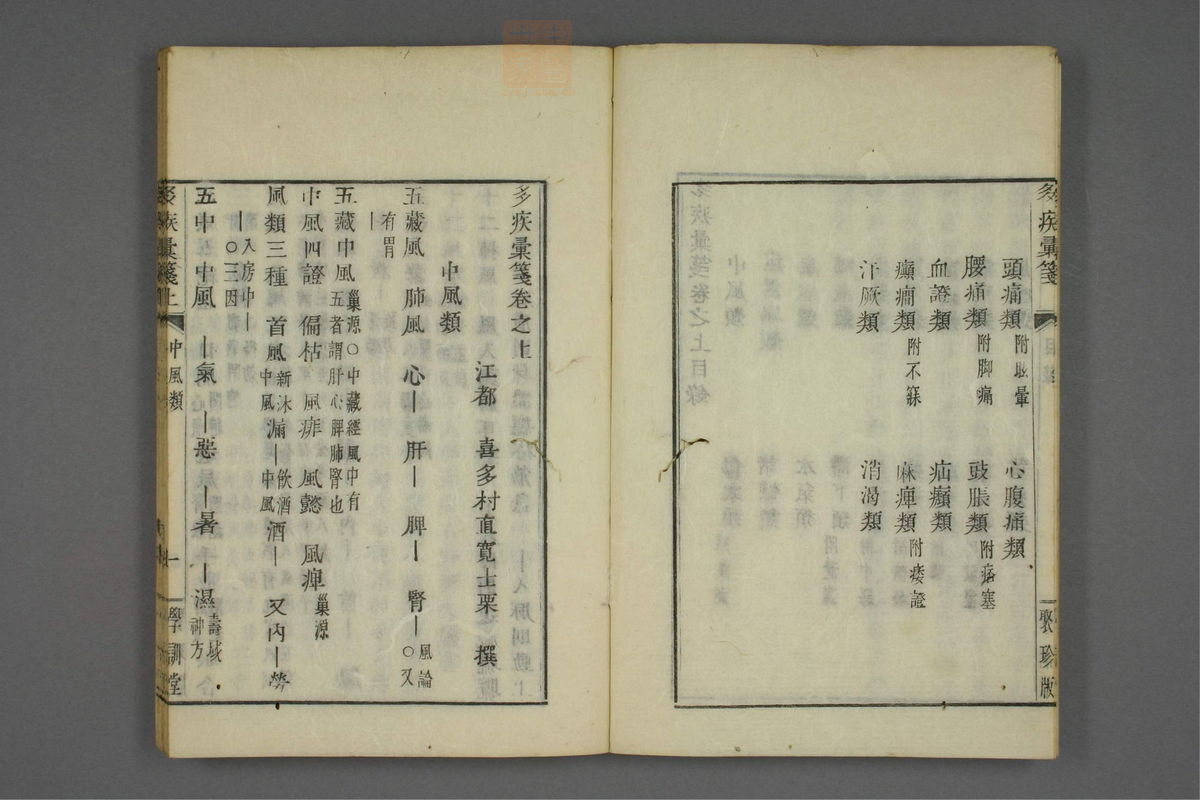 頭痛類 附眩暈 心腹痛類
腰痛類 附脚痛 鼓脹類 附痞塞
血證類 疝㿗類
癲癇類 附不寐 麻痺類 附痿證
汗厥類 消渴類
多疾彙箋
聚珍版
多疾彙箋卷之上
中風類 江都 喜多村直寛士栗 撰
五藏風 肺風 心｜ 肝｜ 脾｜ 腎｜ 風論○又
有胃
｜
五藏中風 巢源○中藏經風中有
五者謂肝心脾肺腎也
中風四證 偏枯 風痱 風懿 風痺 巢源
風類三種 首風 新沐中風 漏｜ 飲酒中風 酒｜ 又內｜ 勞
入房中｜
｜ ○三因
五中 中風 ｜氣 ｜惡 ｜暑 ｜濕 壽域神方
多疾彙箋上 中風類 一 學訓堂